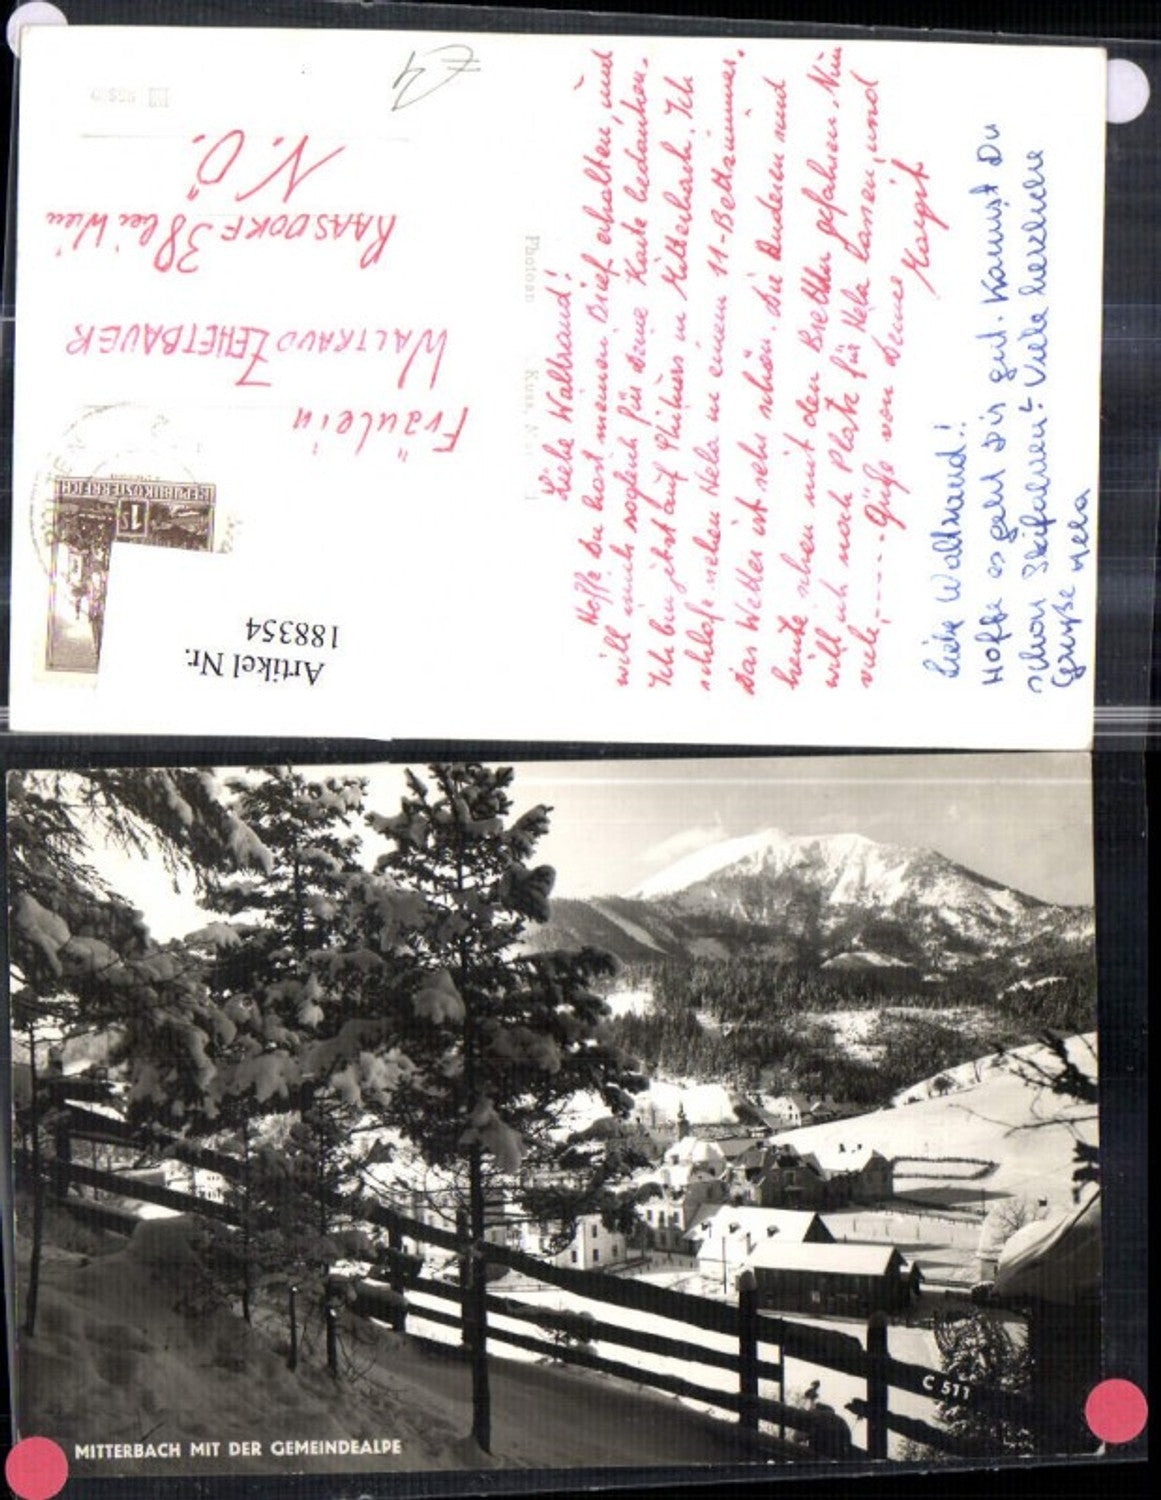 Liebe Waltraud!
Hoffe Du hast meinen Brief erhalten, und
will mich sogleich für Deine Karte bedanken.
Ich bin jetzt auf in Mitterbach. Ich
schlafe neben Hela in einem 11-Bettzimmer.
Das Wetter ist sehr schön. Die Anderen sind
heute schon mit den Brettln gefahren. Nun
will ich noch Platz für Hela lassen, und
viele,----- Grüße von Deiner
Margit
Liebe Waltraud!!
Hoffe es geht Dir gut. Kannst Du
schon Skifahren? Viele herzliche
Grüße Hela
Photoan Kuss,
REPUBLIK ÖSTERREICH
1 S
Fräulein
WALTRAUD ZEHETBAUER
RAASDORF 38 bei Wien
N.Ö.
Artikel Nr.
188354
MITTERBACH MIT DER GEMEINDEALPE
C 511